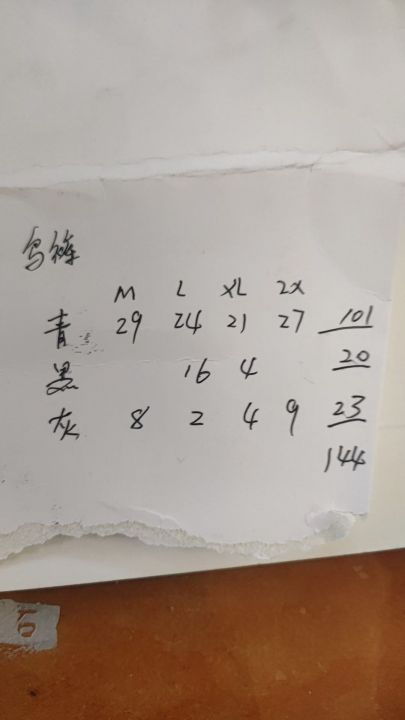 鸟裤
M L XL 2X
青 29 24 21 27 101
黑 16 4 20
灰 8 2 4 9 23
144
10